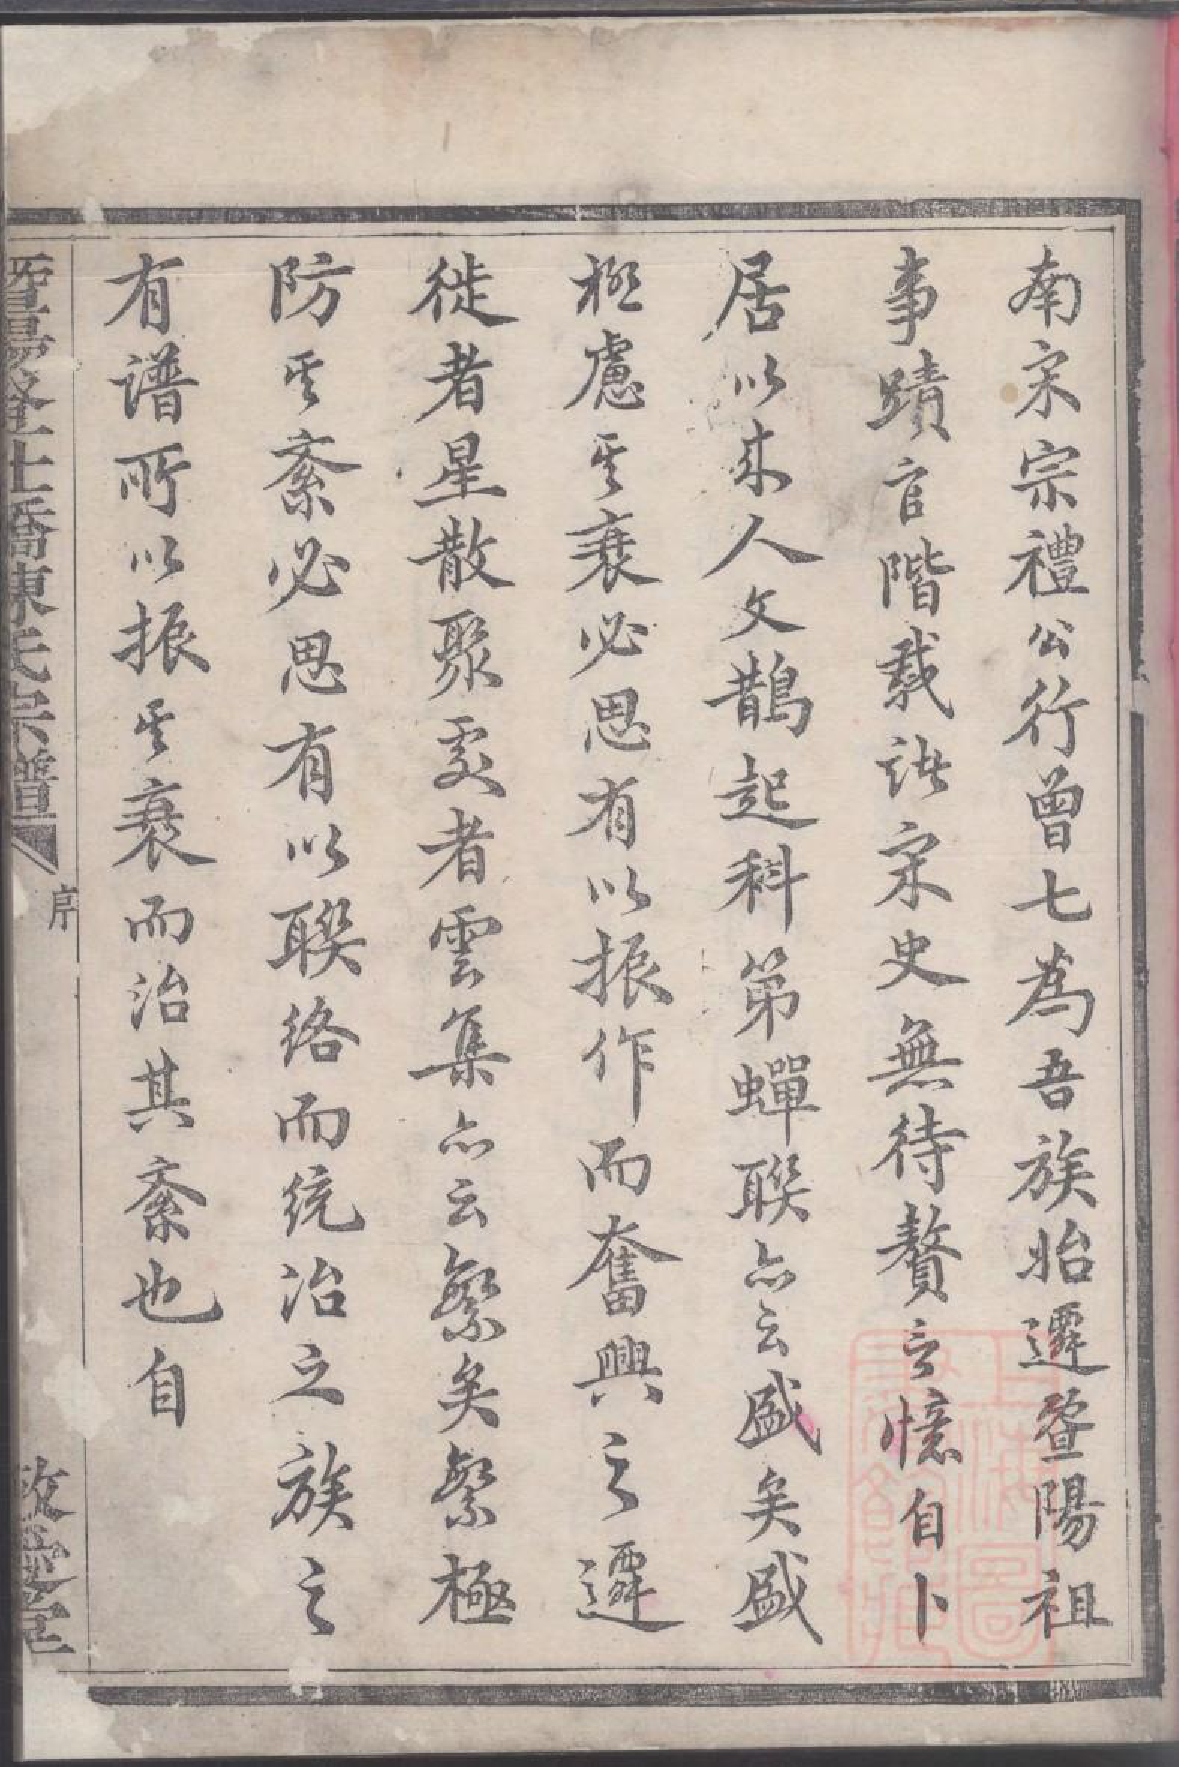 南宋宗禮公行曾七為吾族始遷暨陽祖
事蹟官階載諸宋史無待贅言憶自卜
居以来人文鵲起科第蟬聯亦云盛矣盛
極慮其衰必思有以振作而奮興之遷
徙者星散聚處者雲集亦云繁矣繁極
防其紊必思有以聯絡而統治之族之
有譜所以振其衰而治其紊也自
橋陳氏宗譜
序
上海圖書館藏